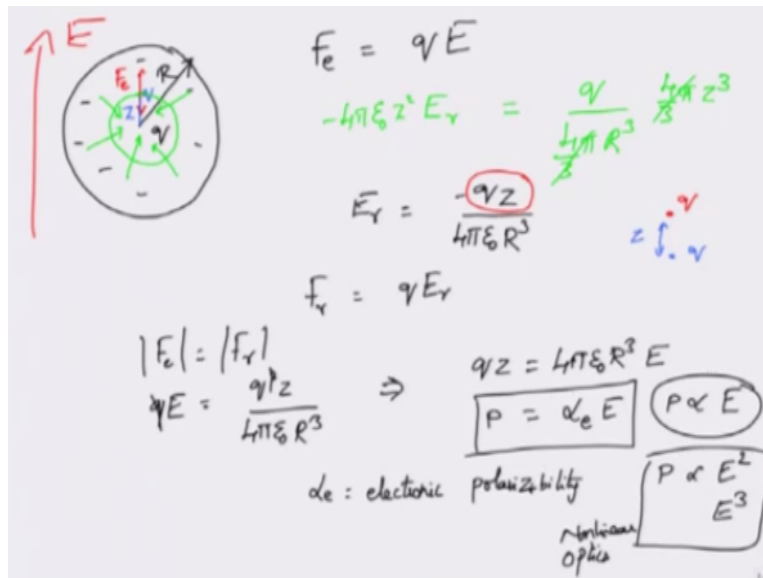 E
R
F_e
z
q
F_e = qE
-4πε₀z² E_r = q / (4/3 π R³) 4/3 π z³
E_r = -qz / 4πε₀R³
q
z
q
F_r = qE_r
|F_e| = |F_r|
qE = q²z / 4πε₀R³ ⇒ qz = 4πε₀R³ E
P = α_e E
P ∝ E
α_e : electronic polarizibility
P ∝ E²
E³
Nonlinear
Optics